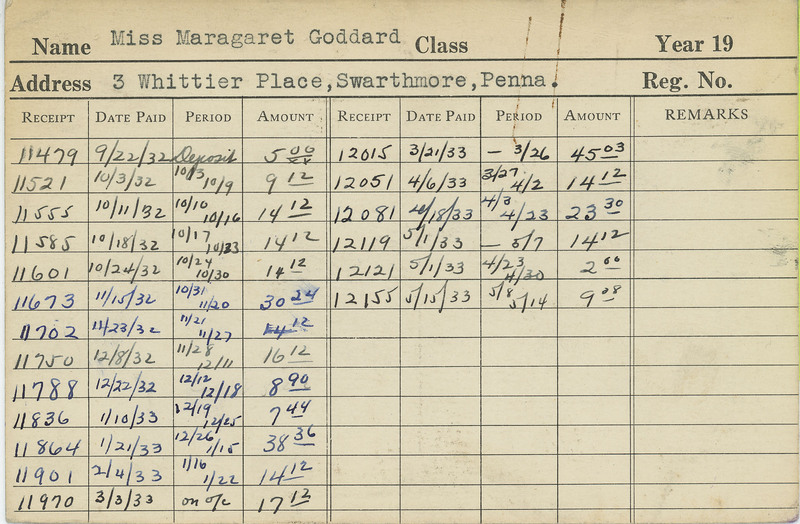 Name Miss Maragaret Goddard Class Year 19
Address 3 Whittier Place, Swarthmore, Penna. Reg. No.
RECEIPT DATE PAID PERIOD AMOUNT RECEIPT DATE PAID PERIOD AMOUNT REMARKS
11479 9/22/32 Deposit 5 00 12015 3/21/33 — 3/26 45 03
11521 10/3/32 10/3 10/9 9 12 12051 4/6/33 3/27 4/2 14 12
11555 10/11/32 10/10 10/16 14 12 12081 4/18/33 4/3 4/23 23 30
11585 10/18/32 10/17 10/23 14 12 12119 5/1/33 — 5/7 14 12
11601 10/24/32 10/24 10/30 14 12 12121 5/1/33 4/23 4/30 2 00
11673 11/15/32 10/31 11/20 30 24 12155 5/15/33 5/8 5/14 9 08
11702 11/23/32 11/21 11/27 14 12
11750 12/8/32 11/28 12/11 16 12
11788 12/22/32 12/12 12/18 8 90
11836 1/10/33 12/19 12/25 7 44
11864 1/21/33 12/26 1/15 38 36
11901 2/4/33 1/16 1/22 14 12
11970 3/3/33 on o/c 17 12